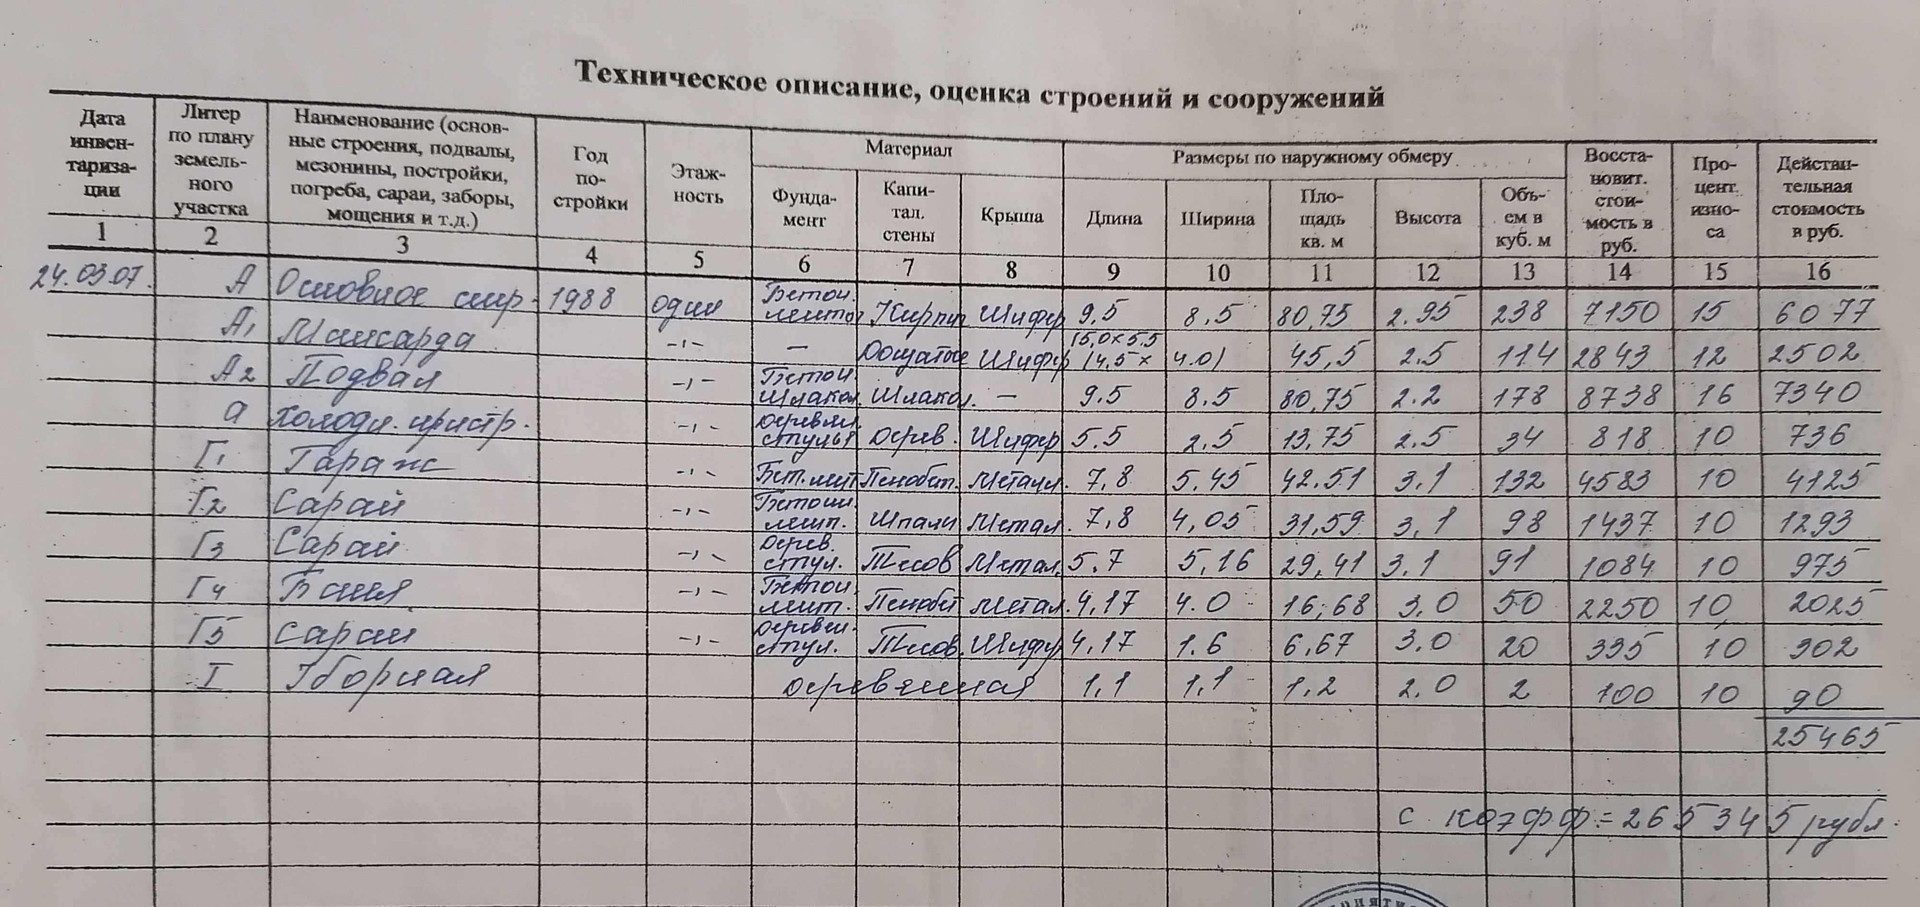 Техническое описание, оценка строений и сооружений
Дата инвен-тариза-ции | Литер по плану земель-ного участка | Наименование (основ-ные строения, подвалы, мезонины, постройки, погреба, сараи, заборы, мощения и т.д.) | Год по-стройки | Этаж-ность | Материал | Размеры по наружному обмеру | Восста-новит. стои-мость в руб. | Про-цент изно-са | Действи-тельная стоимость в руб.
Фунда-мент | Капи-тал. стены | Крыша | Длина | Ширина | Пло-щадь кв. м | Высота | Объ-ем в куб. м
1 2 3 4 5 6 7 8 9 10 11 12 13 14 15 16
24.03.07. А Основное стр. 1988 один Бетон. ленточ Кирпич Шифер 9,5 8,5 80,75 2.95 238 7150 15 6077
А1 Мансарда -,,- — Дощатое Шифер (5,0×5.5 (4,5× 4.0) 45,5 2.5 114 2843 12 2502
А2 Подвал -,,- Бетон. Шлакол. — 9.5 8.5 80,75 2.2 178 8738 16 7340
а холодн. пристр. -,,- деревян. стулья дерев. Шифер 5.5 2.5 13,75 2.5 34 818 10 736
Г1 Гараж -,,- Бет. лент Пенобет. Металл. 7,8 5,45 42.51 3,1 132 4583 10 4125
Г2 Сарай -,,- Бетонн. лент. Шпалы Метал. 7,8 4,05 31,59 3,1 98 1437 10 1293
Г3 Сарай -,,- дерев. стул. Тесов Метал. 5.7 5,16 29,41 3.1 91 1084 10 975
Г4 Баня -,,- Бетон. лент. Пенобет Метал. 4,17 4.0 16,68 3,0 50 2250 10, 2025
Г5 Сарай -,,- деревян. стул. Тесов. Шифер 4,17 1.6 6,67 3.0 20 335 10 302
I Уборная деревянная 1,1 1,1 1,2 2.0 2 100 10 90
25465
с коэфф = 265345 рубл.